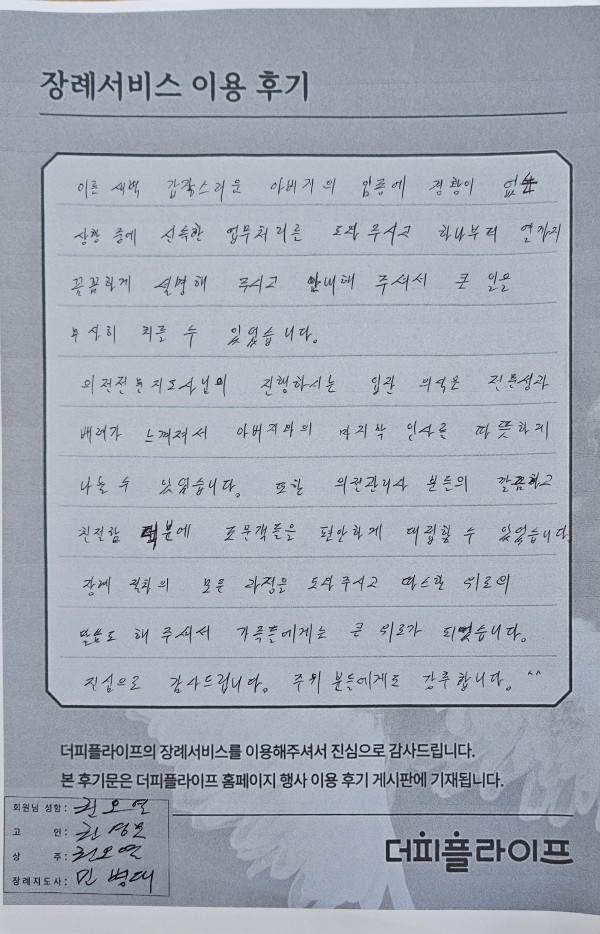 장례서비스 이용 후기
이른 새벽 갑작스러운 아버지의 임종에 경황이 없는
상황 중에 신속한 업무처리를 도와 주시고 하나부터 열까지
꼼꼼하게 설명해 주시고 안내해 주셔서 큰 일을
무사히 치를 수 있었습니다.
의전전문지도사님의 진행하시는 입관 의식은 전문성과
배려가 느껴져서 아버지와의 마지막 인사를 따뜻하게
나눌 수 있었습니다. 또한 의전관리사 분들의 깔끔하고
친절함 덕분에 조문객들을 편안하게 대접할 수 있었습니다
장례 절차의 모든 과정을 도와주시고 따스한 위로의
말씀도 해 주셔서 가족들에게는 큰 위로가 되었습니다.
진심으로 감사드립니다. 주위 분들에게도 강추합니다. ^^
더피플라이프의 장례서비스를 이용해주셔서 진심으로 감사드립니다.
본 후기문은 더피플라이프 홈페이지 행사 이용 후기 게시판에 기재됩니다.
회원님 성함:
고 인:
상 주:
장례지도사: 민병대
더피플라이프